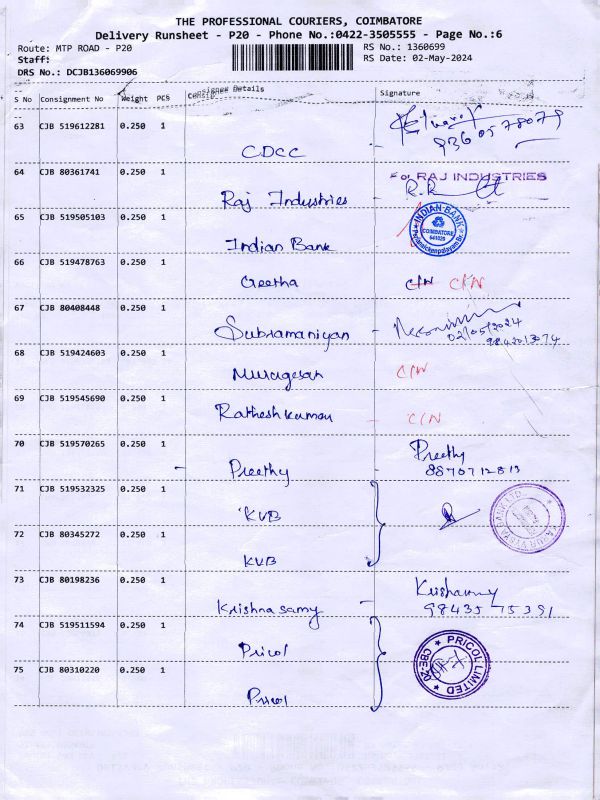 THE PROFESSIONAL COURIERS, COIMBATORE
Delivery Runsheet - P20 - Phone No.:0422-3505555 - Page No.:6
Route: MTP ROAD - P20 RS No.: 1360699
Staff: RS Date: 02-May-2024
DRS No.: DCJB136069906
S No Consignment No Weight PCS Consignee Details Signature
63 CJB 519612281 0.250 1 CDCC 9360578079
64 CJB 80361741 0.250 1 Raj Industries For RAJ INDUSTRIES
65 CJB 519505103 0.250 1 Indian Bank INDIAN BANK COIMBATORE 641020
66 CJB 519478763 0.250 1 Geetha C/N C/N
67 CJB 80408448 0.250 1 Subramaniyan - 02/05/2024
9842013074
68 CJB 519424603 0.250 1 Murugesan C/N
69 CJB 519545690 0.250 1 Ratheshkumar - C/N
70 CJB 519570265 0.250 1 - Preethy - Preethy
8870712813
71 CJB 519532325 0.250 1 KVB
72 CJB 80345272 0.250 1 KVB
73 CJB 80198236 0.250 1 Krishnasamy - 98435 75391
74 CJB 519511594 0.250 1 Pricol PRICOL LIMITED
75 CJB 80310220 0.250 1 Pricol